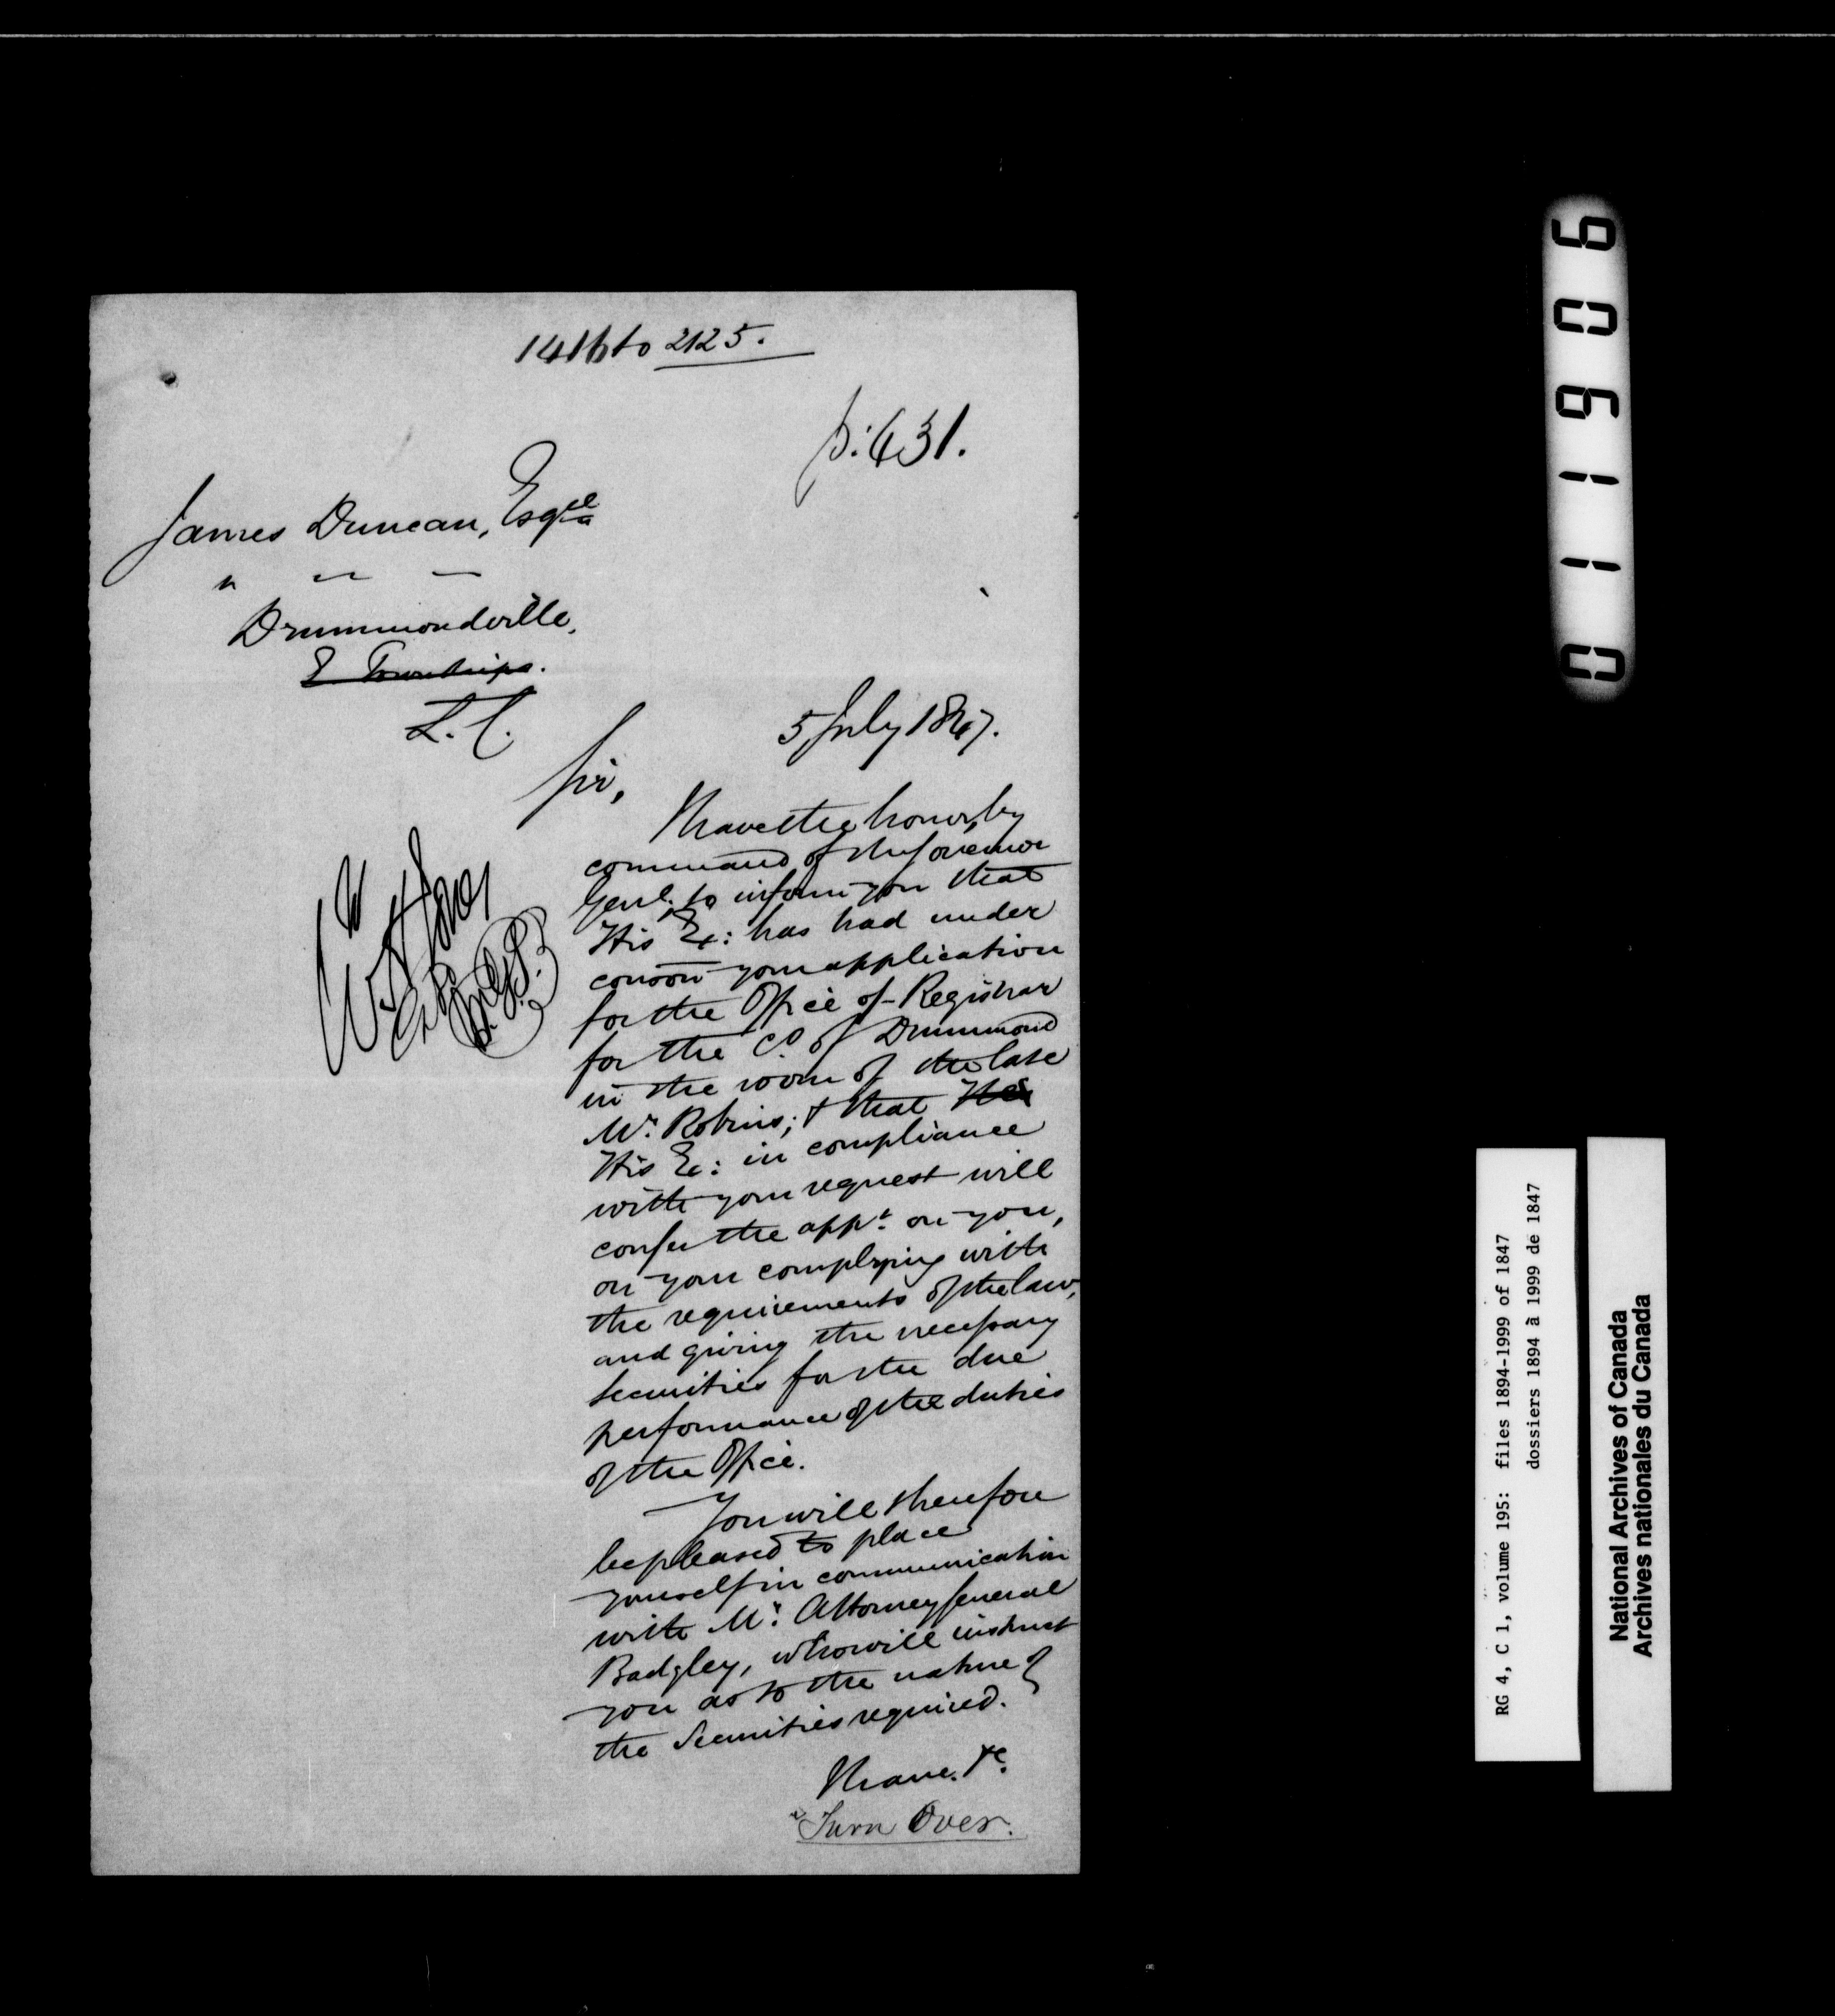 1416 to 2125.
p: 431.
James Duncan, Esqre
" " "
Drummondville,
E Townships.
L. C.
5 July 1847.
Sir,
I have the honor, by
command of the Governor
Genl. to inform you that
His Ex: has had under
conson your application
for the Office of Registrar
for the Co. of Drummond
in the room of the late
Mr. Robins; & that His
His Ex: in compliance
with your request will
confer the appt. on you,
on your complying with
the requirements of the law,
and giving the necessary
securities for the due
performance of the duties
of the Office.
You will therefore
be pleased to place
yourself in communication
with Mr. Attorney General
Badgley, who will instruct
you as to the nature of
the Securities required.
I have. &c.
Turn Over.
011906
RG 4, C 1, volume 195: files 1894-1999 of 1847
dossiers 1894 à 1999 de 1847
National Archives of Canada
Archives nationales du Canada